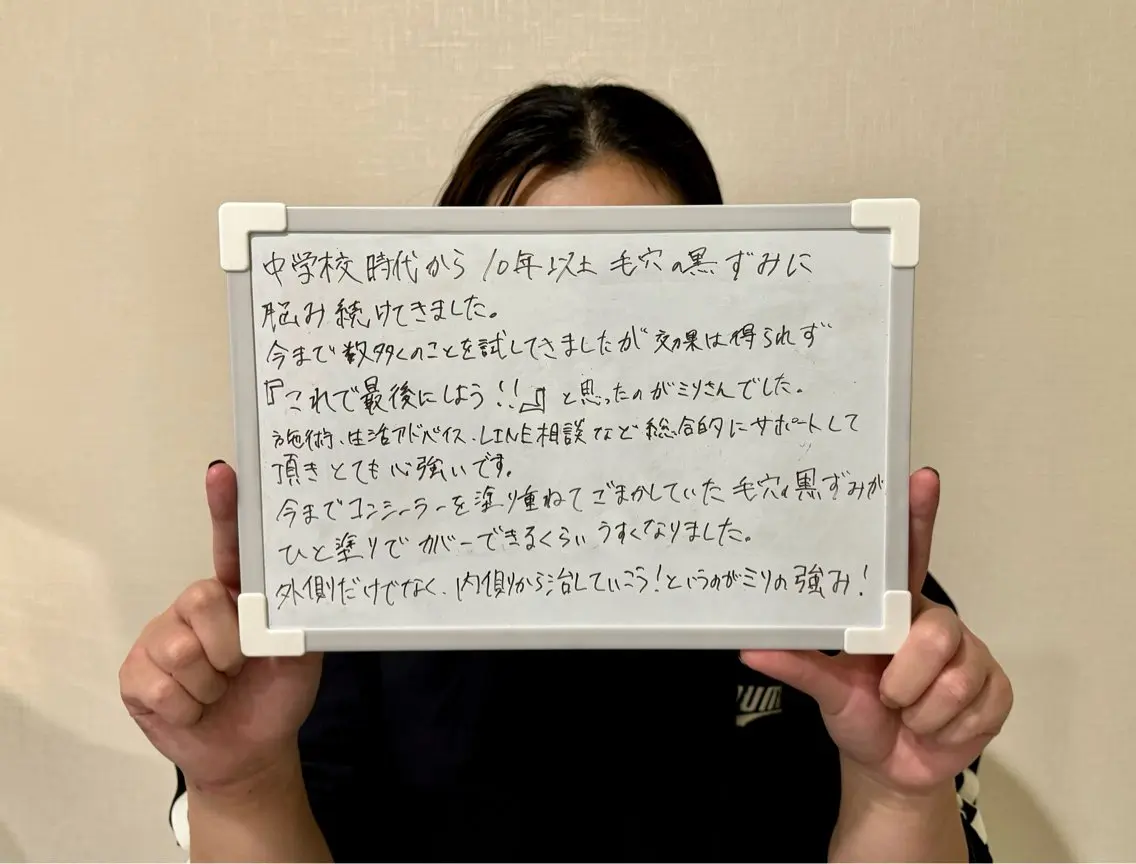 中学校時代から10年以上毛穴の黒ずみに
悩み続けてきました。
今まで数多くのことを試してきましたが効果は得られず
『これで最後にしよう!!』と思ったのがミリさんでした。
施術、生活アドバイス、LINE相談など総合的にサポートして
頂きとても心強いです。
今までコンシーラーを塗り重ねてごまかしていた毛穴の黒ずみが
ひと塗りでカバーできるくらいうすくなりました。
外側だけでなく、内側から治していこう!というのがミリの強み!
PUM